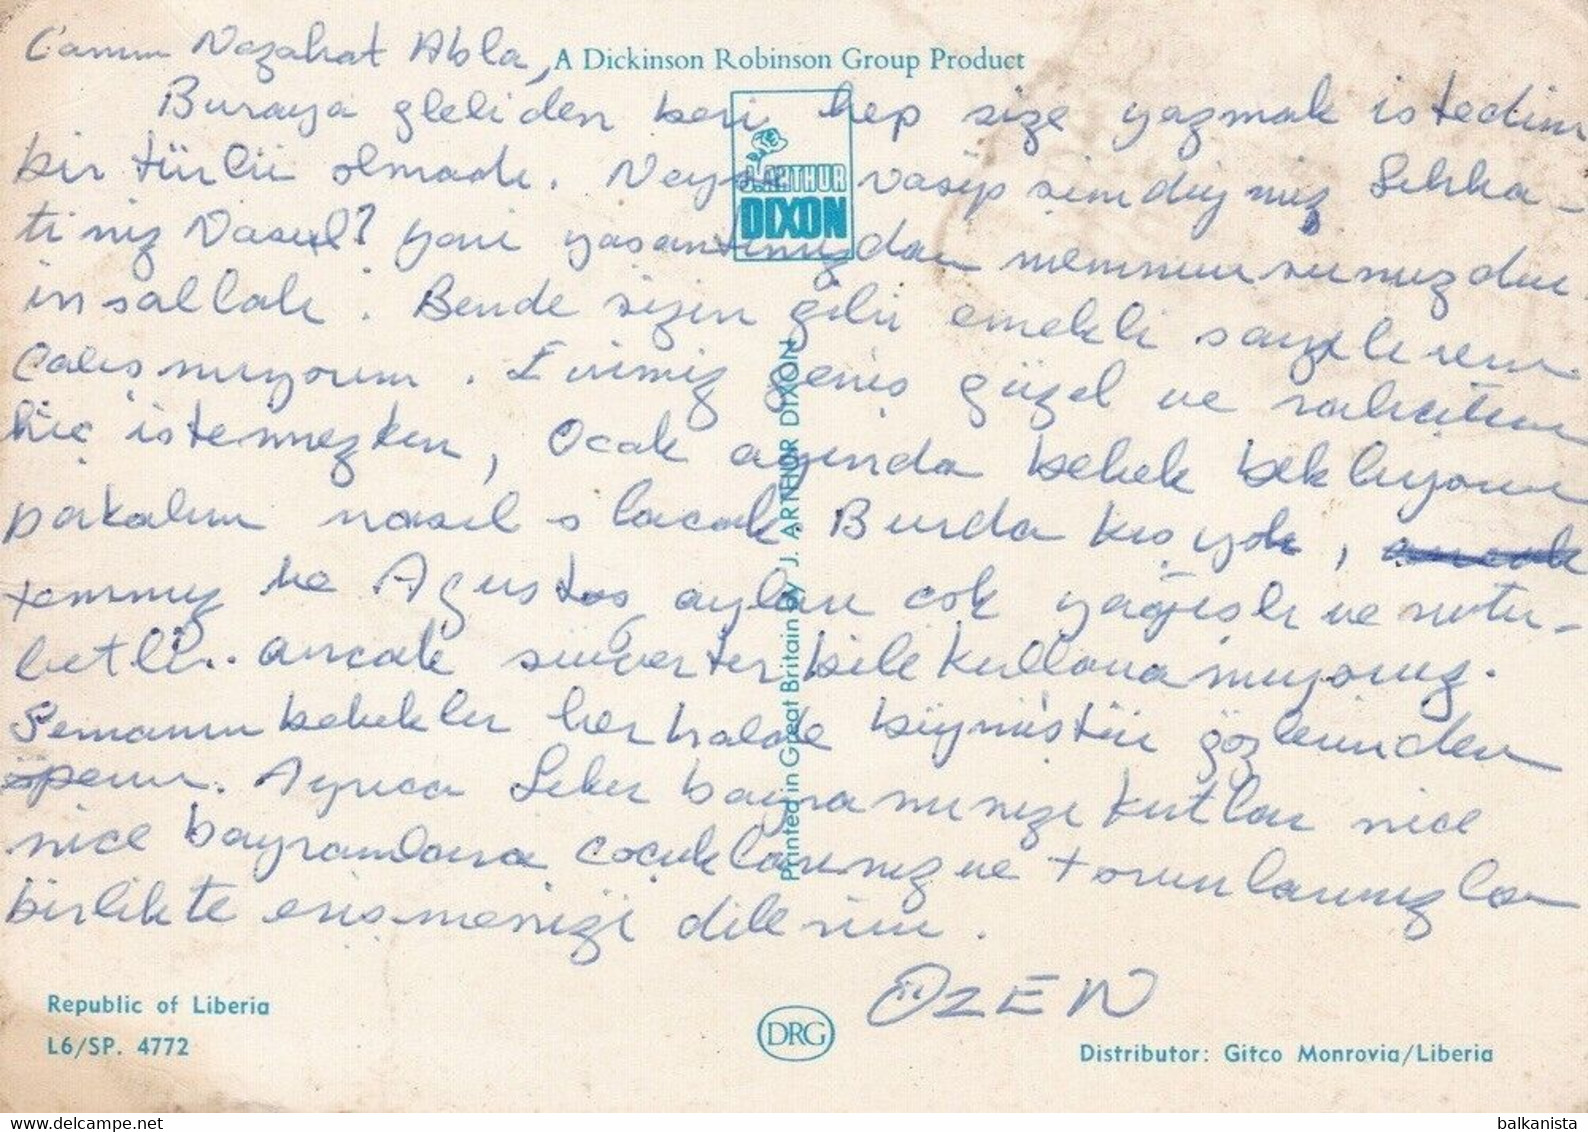 Canım Nezahat Abla,
A Dickinson Robinson Group Product
Buraya gleliden beri hep size yazmak istedim
bir türlü olmadı. Neyse
simdi
Sıhha-
tiniz Nasıl? yani yasantınızdan memnunsunuzdur
insallah. Bende sizin gibi emekli sayılırım
Calısmıyorum. Evimiz genis güzel ve
hiç istemezken, Ocak ayında bebek bekliyorum
bakalım nasıl olacak. Burda kıs yok,
temmuz ve Agustos ayları cok yağıslı ve rutu-
betli.. ancak
bile kullanamıyoruz.
Semanın bebekler herhalde büyümüstür gözlerinden
öperim. Ayrıca Seker bayramınızı kutlar nice
nice bayramlara çocuklarınız ve torunlarınızla
birlikte erismenizi dilerim.
ÖZEN
J. ARTHUR
DIXON
Printed in Great Britain by J. ARTHUR DIXON
Republic of Liberia
L6/SP. 4772
DRG
Distributor: Gitco Monrovia/Liberia
balkanista